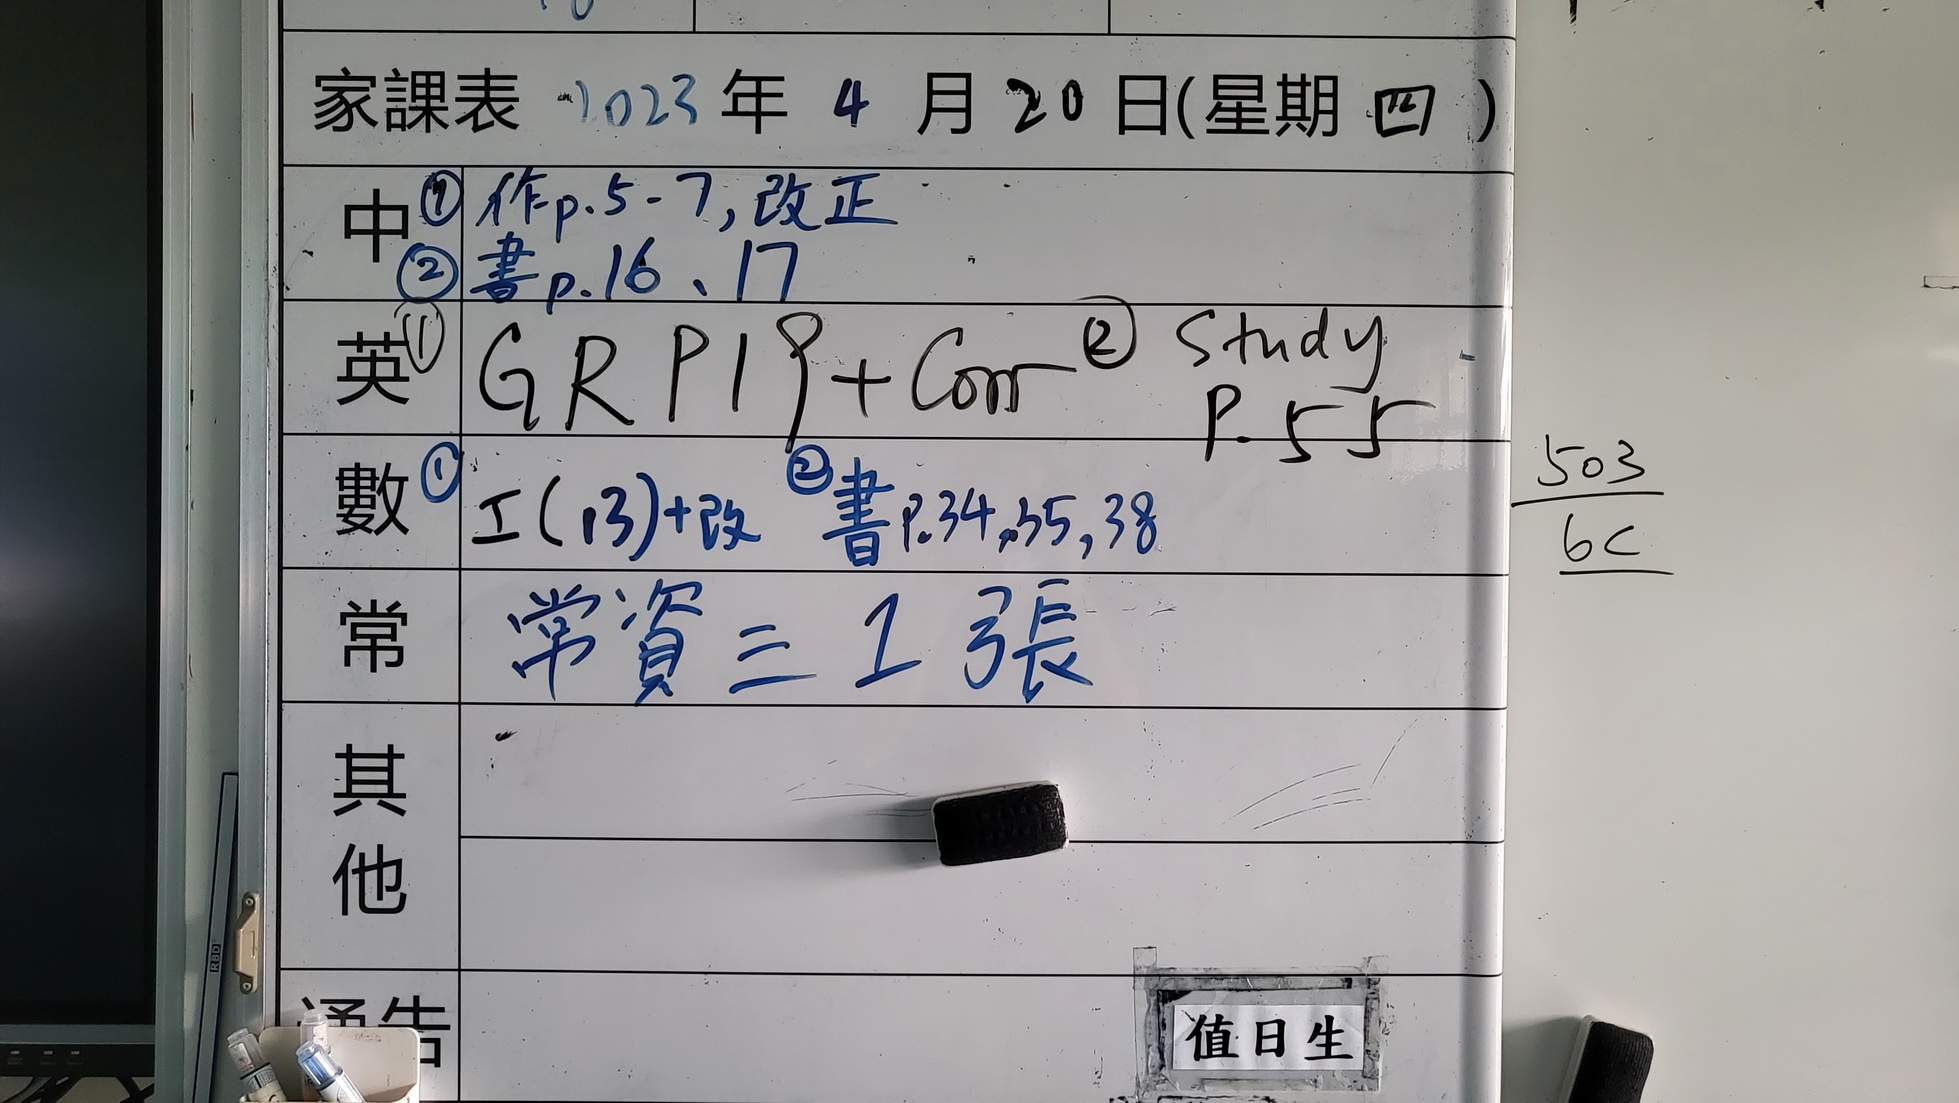 家課表 2023年 4 月 20 日(星期 四 )
中 ① 作p.5-7,改正
② 書p.16、17
英 ① GR P19+Corr ② Study
P.55
數 ① 工(13)+改 ② 書P.34,35,38
503
6C
常 常資二 1 張
其
他
通告
值日生
RBD